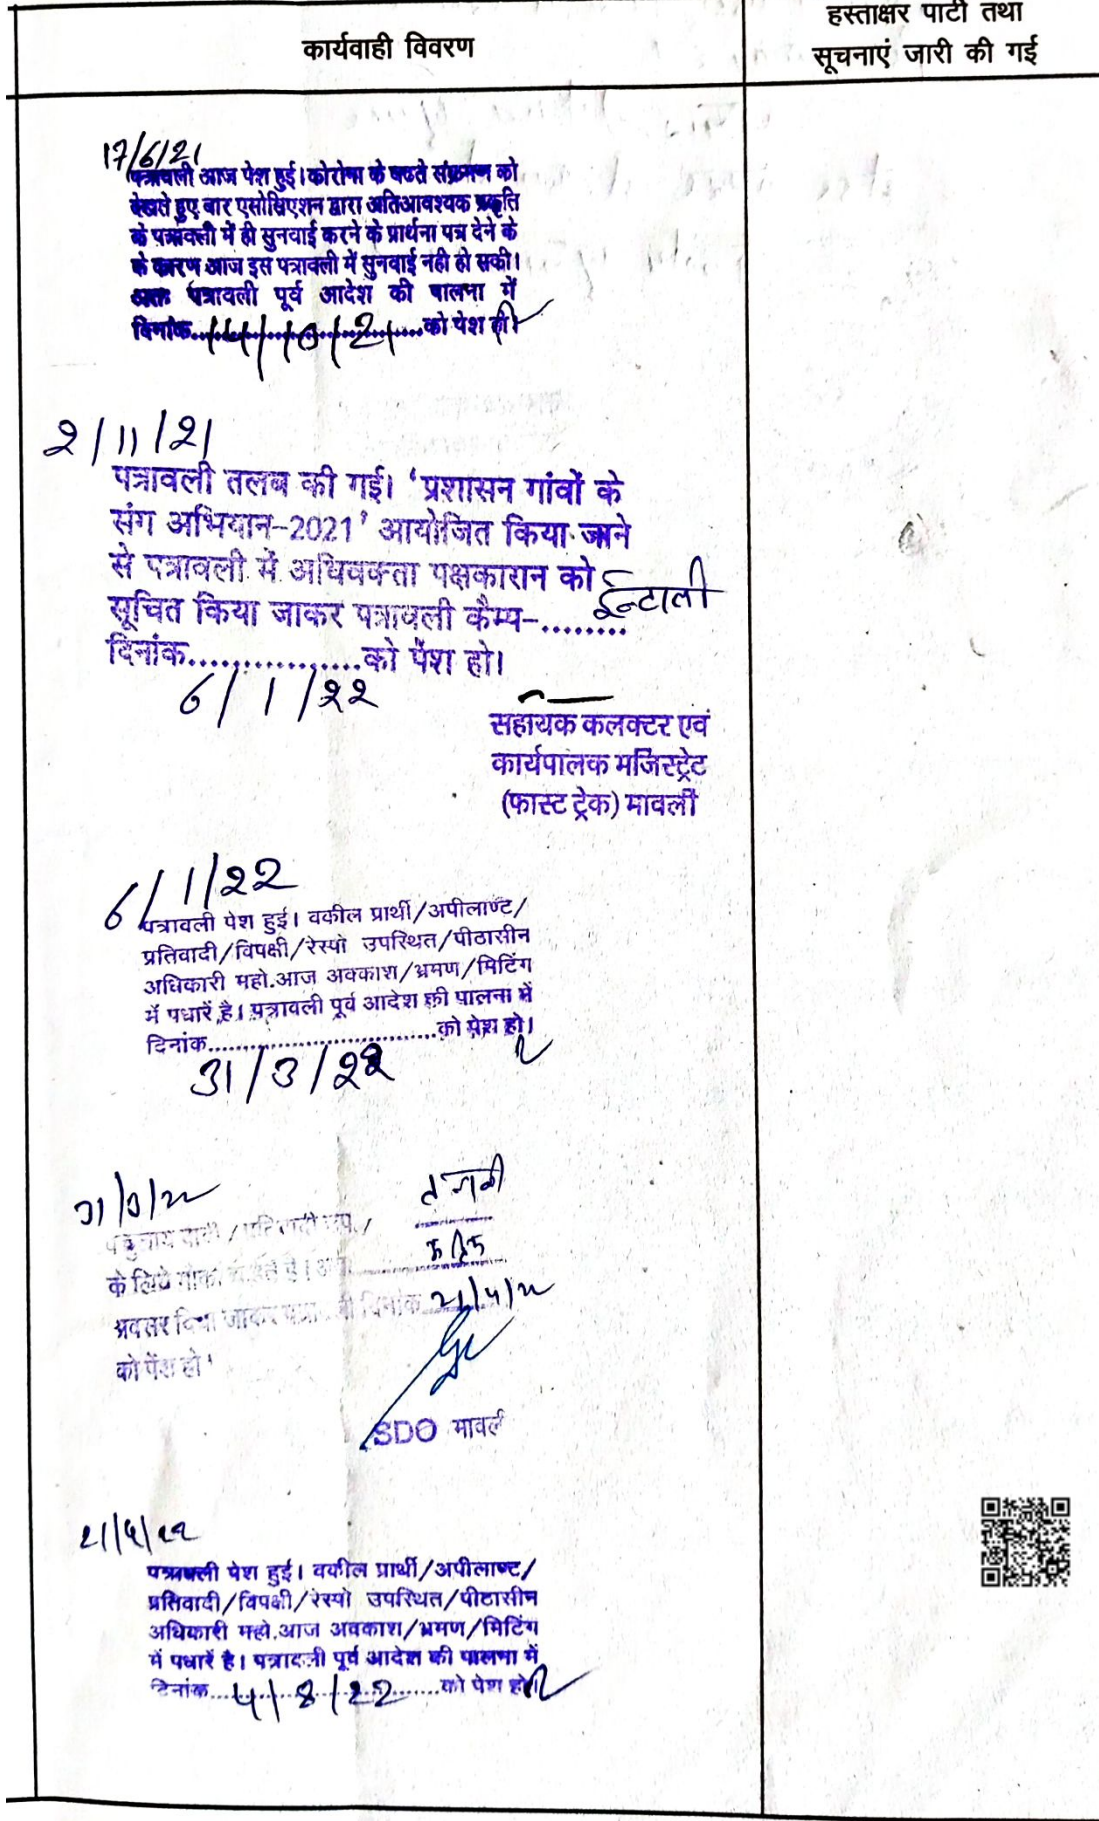 कार्यवाही विवरण
हस्ताक्षर पार्टी तथा
सूचनाएं जारी की गई
17/6/21
पत्रावली आज पेश हुई। कोरोना के बढते संक्रमण को
देखते हुए बार एसोसिएशन द्वारा अतिआवश्यक प्रकृति
के पत्रावली में ही सुनवाई करने के प्रार्थना पत्र देने के
के कारण आज इस पत्रावली में सुनवाई नही हो सकी।
अतः पत्रावली पूर्व आदेश की पालना में
दिनांक 14/10/21 को पेश हो।
2/11/21
पत्रावली तलब की गई। 'प्रशासन गांवों के
संग अभियान-2021' आयोजित किया जाने
से पत्रावली में अधिवक्ता पक्षकारान को
सूचित किया जाकर पत्रावली कैम्प-........ ईन्टाली
दिनांक.................को पेश हो।
6/1/22
सहायक कलक्टर एवं
कार्यपालक मजिस्ट्रेट
(फास्ट ट्रेक) मावली
6/1/22
पत्रावली पेश हुई। वकील प्रार्थी/अपीलाण्ट/
प्रतिवादी/विपक्षी/रेस्पो उपस्थित/पीठासीन
अधिकारी महो.आज अवकाश/भ्रमण/मिटिंग
में पधारें है। पत्रावली पूर्व आदेश की पालना में
दिनांक.................................को पेश हो।
31/3/22
31/3/22
के लिये मौका चाहते है।
अवसर दिया जाकर दिनांक 21/4/22
को पेश हो
SDO मावली
21/4/22
पत्रावली पेश हुई। वकील प्रार्थी/अपीलाण्ट/
प्रतिवादी/विपक्षी/रेस्पो उपस्थित/पीठासीन
अधिकारी महो.आज अवकाश/भ्रमण/मिटिंग
में पधारें है। पत्रावली पूर्व आदेश की पालना में
दिनांक 4/8/22 को पेश हो।